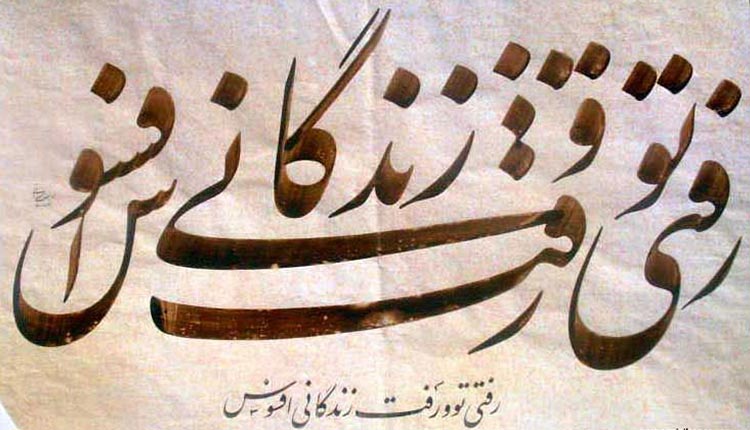 رفتی تو و رفت زندگانی افسوس
رفتی تو و رفت زندگانی افسوس